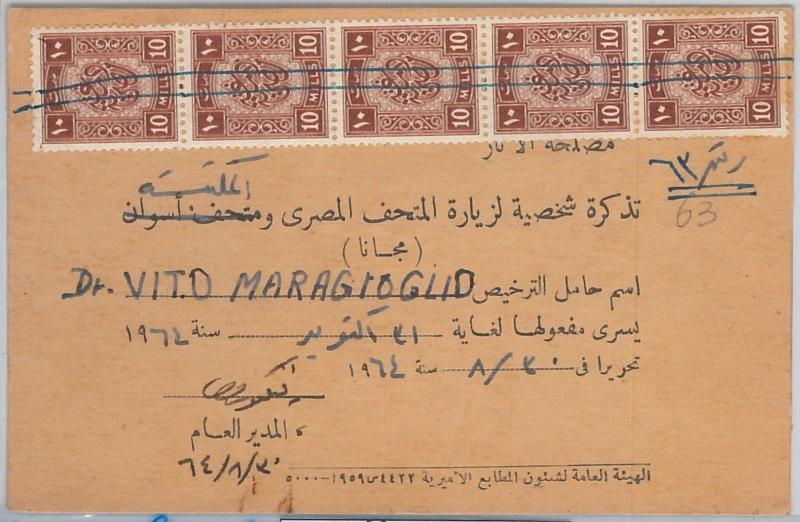 ١٠ 10 MILLS 10 ١٠ 10 MILLS 10 ١٠ 10 MILLS 10 ١٠ 10 MILLS 10 ١٠ 10 MILLS 10
مصلحة الآثار
رقم ٦٣
63
المكتبة
تذكرة شخصية لزيارة المتحف المصرى ومتحف أسوان
(مجانا)
اسم حامل الترخيص Dr. VITO MARAGIOGLIO
يسرى مفعولها لغاية ٣١ اكتوبر سنة ١٩٦٤
تحريرا فى ٨/٣٠ سنة ١٩٦٤
المدير العام
٦٤/٨/٣٠
الهيئة العامة لشئون المطابع الأميرية ٤٤٢٢س١٩٥٩-٥٠٠٠